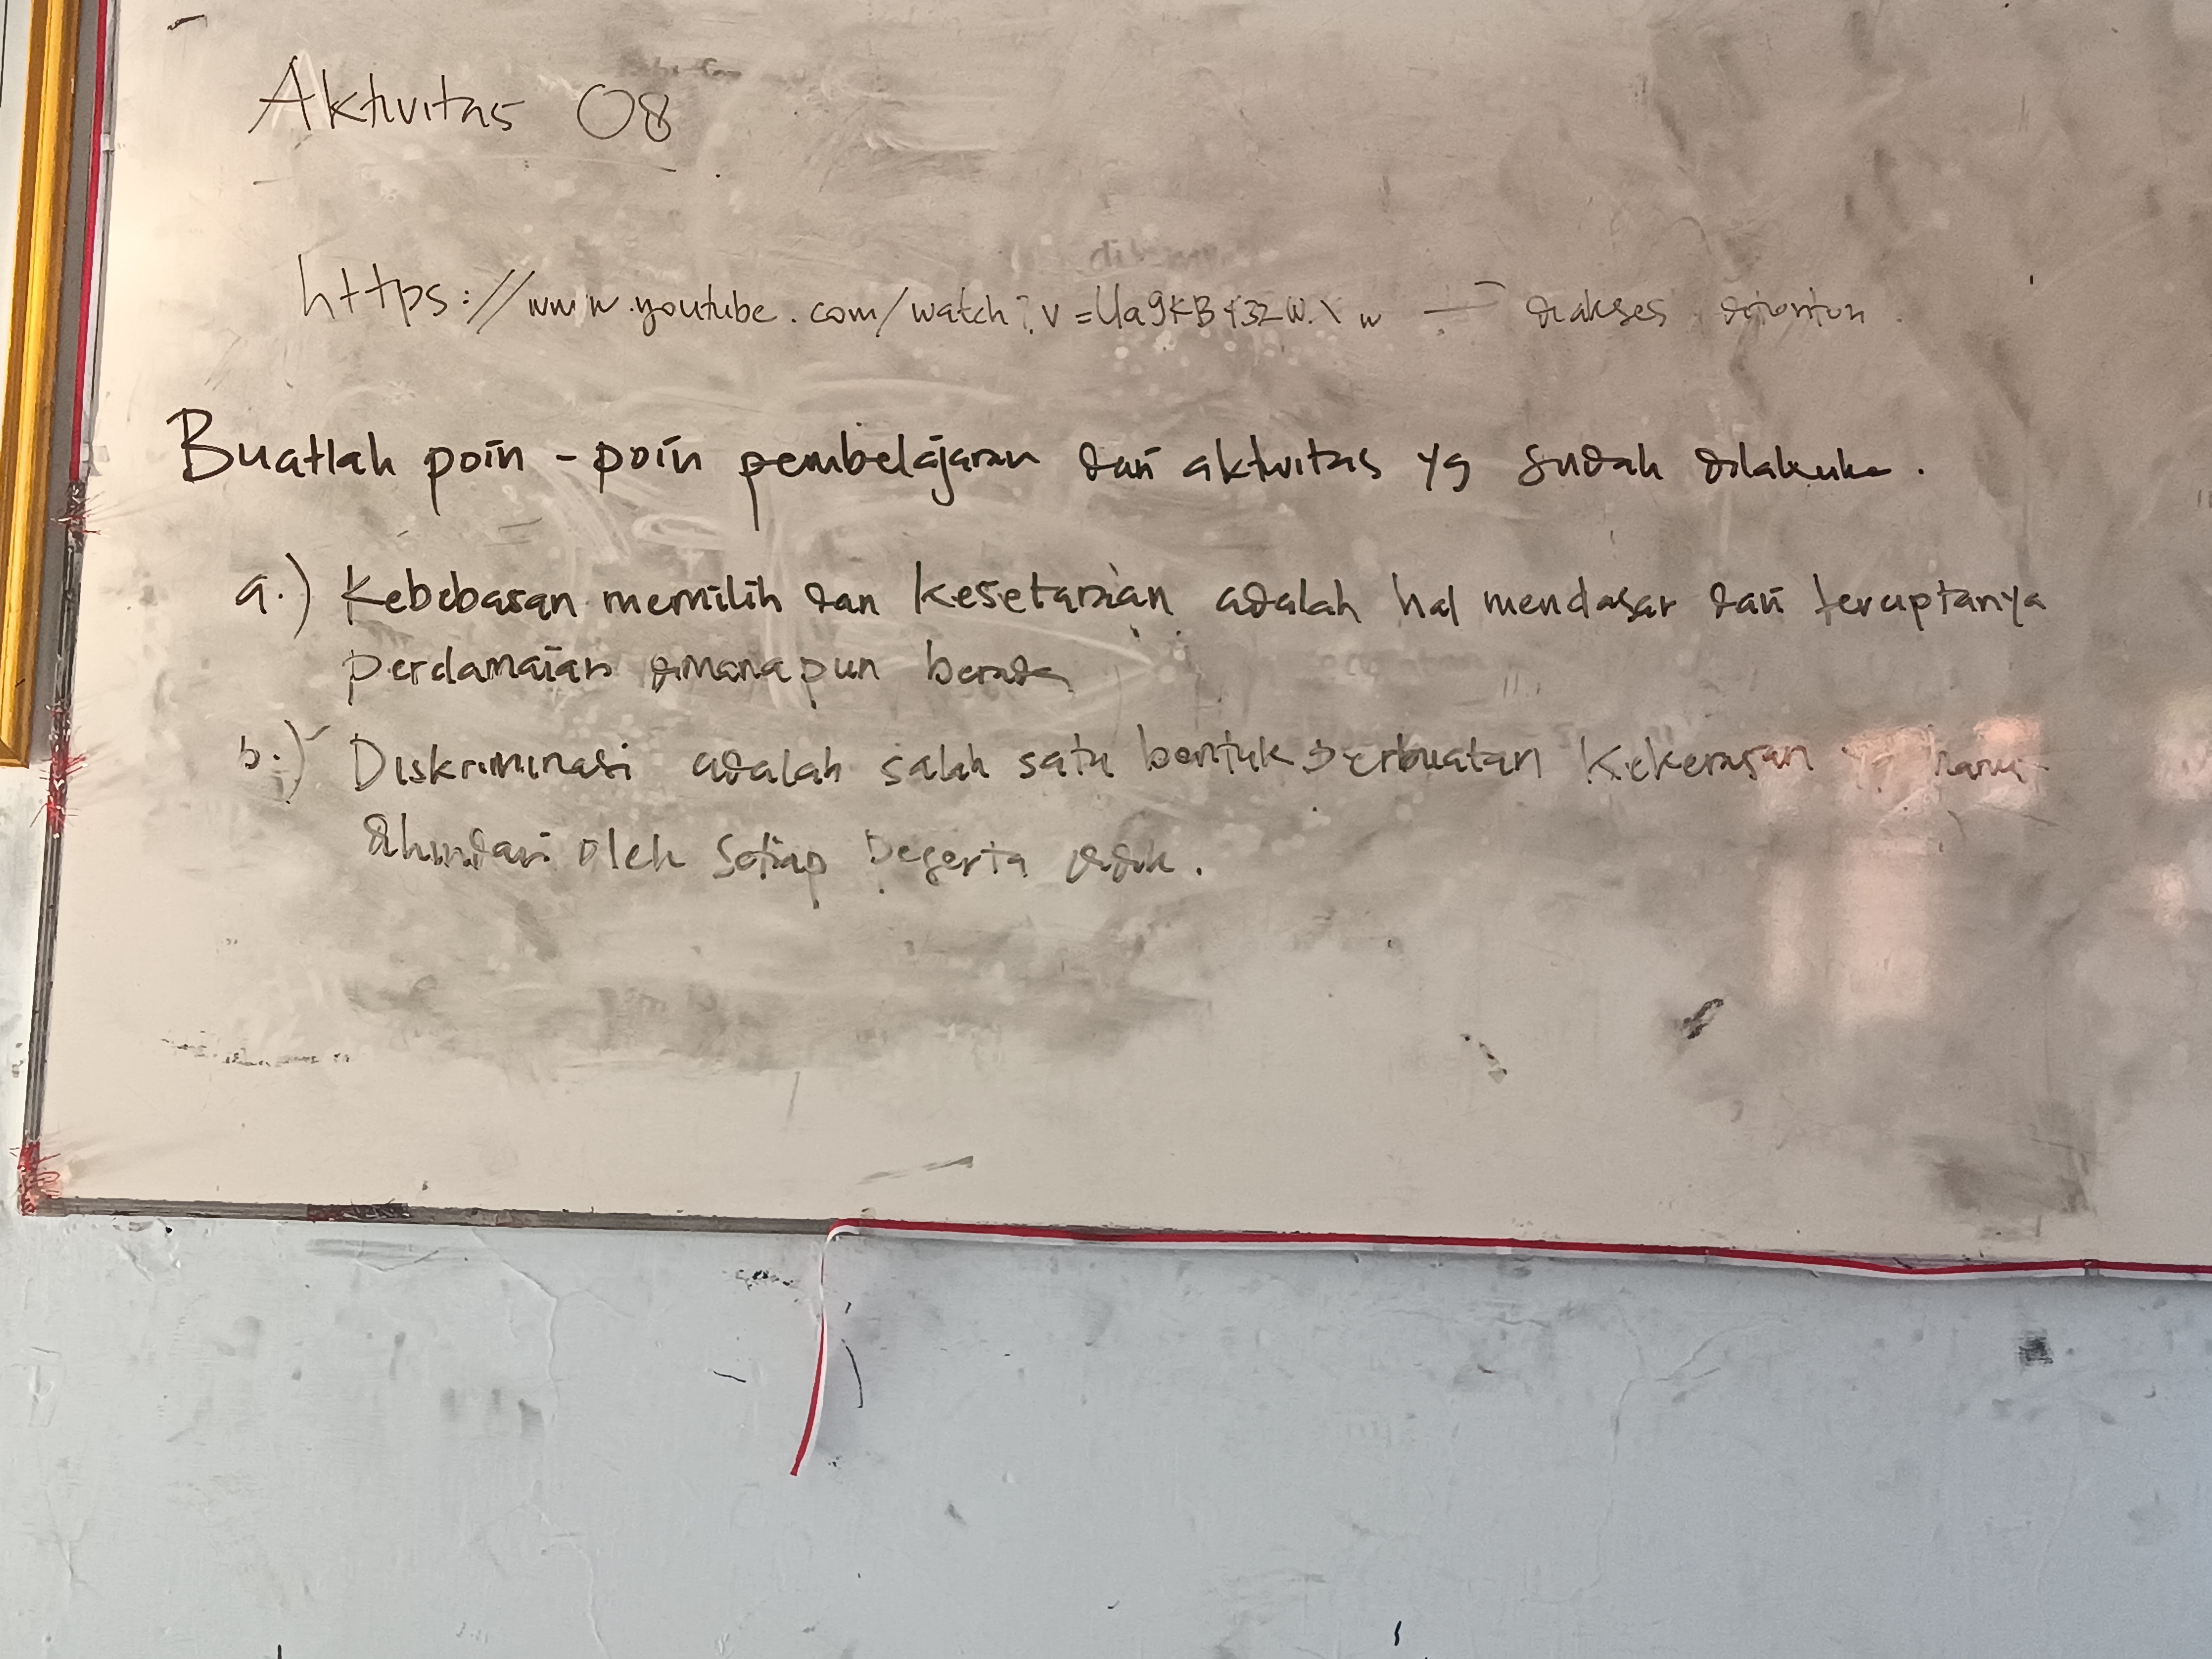 Aktivitas 08
https://www.youtube.com/watch?v= diakses ditonton.
Buatlah poin - poin pembelajaran dari aktivitas yg sudah dilakukan.
a.) Kebebasan memilih dan kesetaraan adalah hal mendasar dari terciptanya
perdamaian dimanapun berada
b.) Diskriminasi adalah salah satu bentuk perbuatan kekerasan yg harus
dihindari oleh setiap peserta didik.